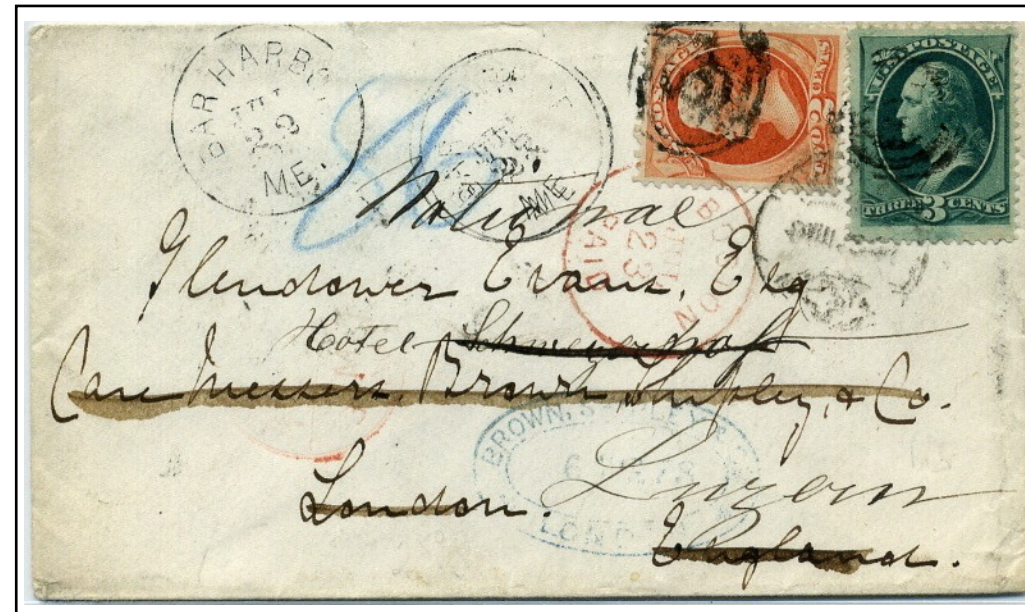 BAR HARBO
JUL
22
ME.
ME
U.S. POSTAGE
THREE 3 CENTS
BOSTON
JUL
23
PAID
National
Glendower Evans, Esq
Hotel Schweizerhof
Care Messers. Brown, Shipley, & Co.
BROWN, SHIPLEY & CO
LONDON
London. Luzern
England.